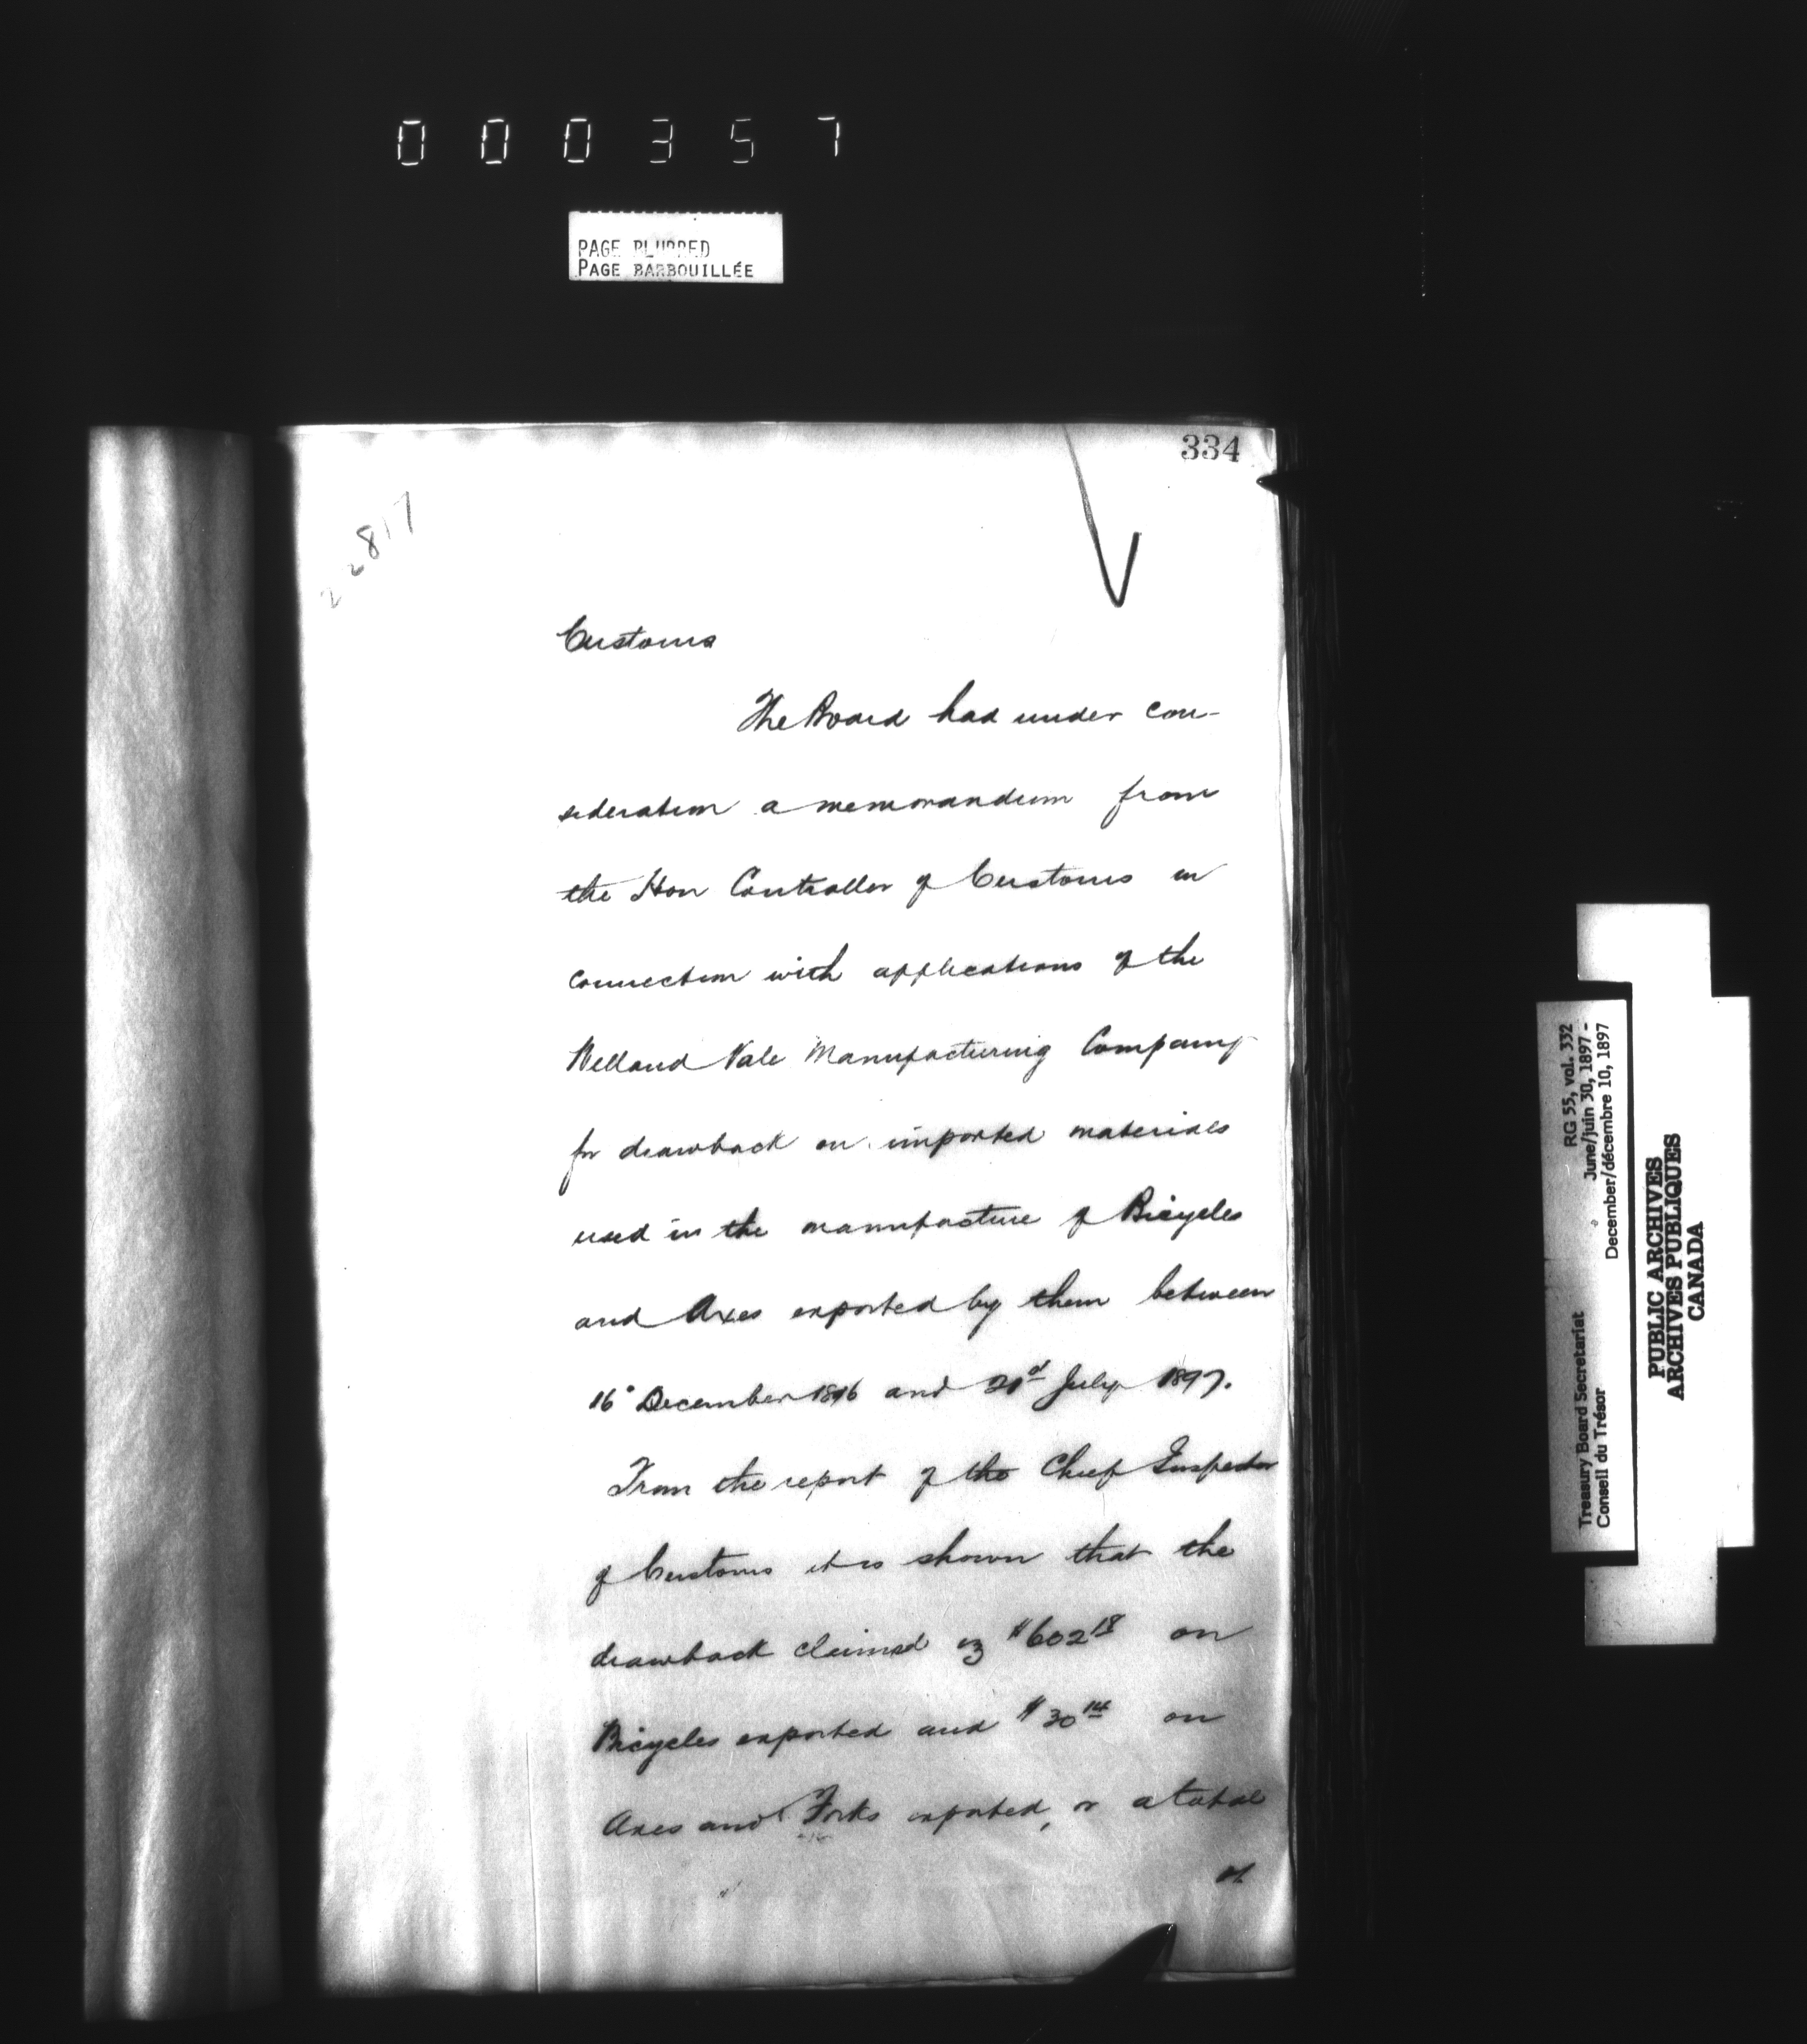 000357
PAGE BLURRED
PAGE BARBOUILLÉE
334
22817
Customs
The Board had under con-
sideration a memorandum from
the Hon Controller of Customs in
connection with applications of the
Welland Vale Manufacturing Company
for drawback on imported materials
used in the manufacture of Bicycles
and Axes exported by them between
16° December 1896 and 21d July 1897.
From the report of the Chief Inspector
of Customs it is shown that the
drawback claimed is $602 18 on
Bicycles exported and $30 14 on
Axes and Forks exported, or a total
of
RG 55, vol. 332
June/juin 30, 1897 -
December/décembre 10, 1897
Treasury Board Secretariat
Conseil du Trésor
PUBLIC ARCHIVES
ARCHIVES PUBLIQUES
CANADA